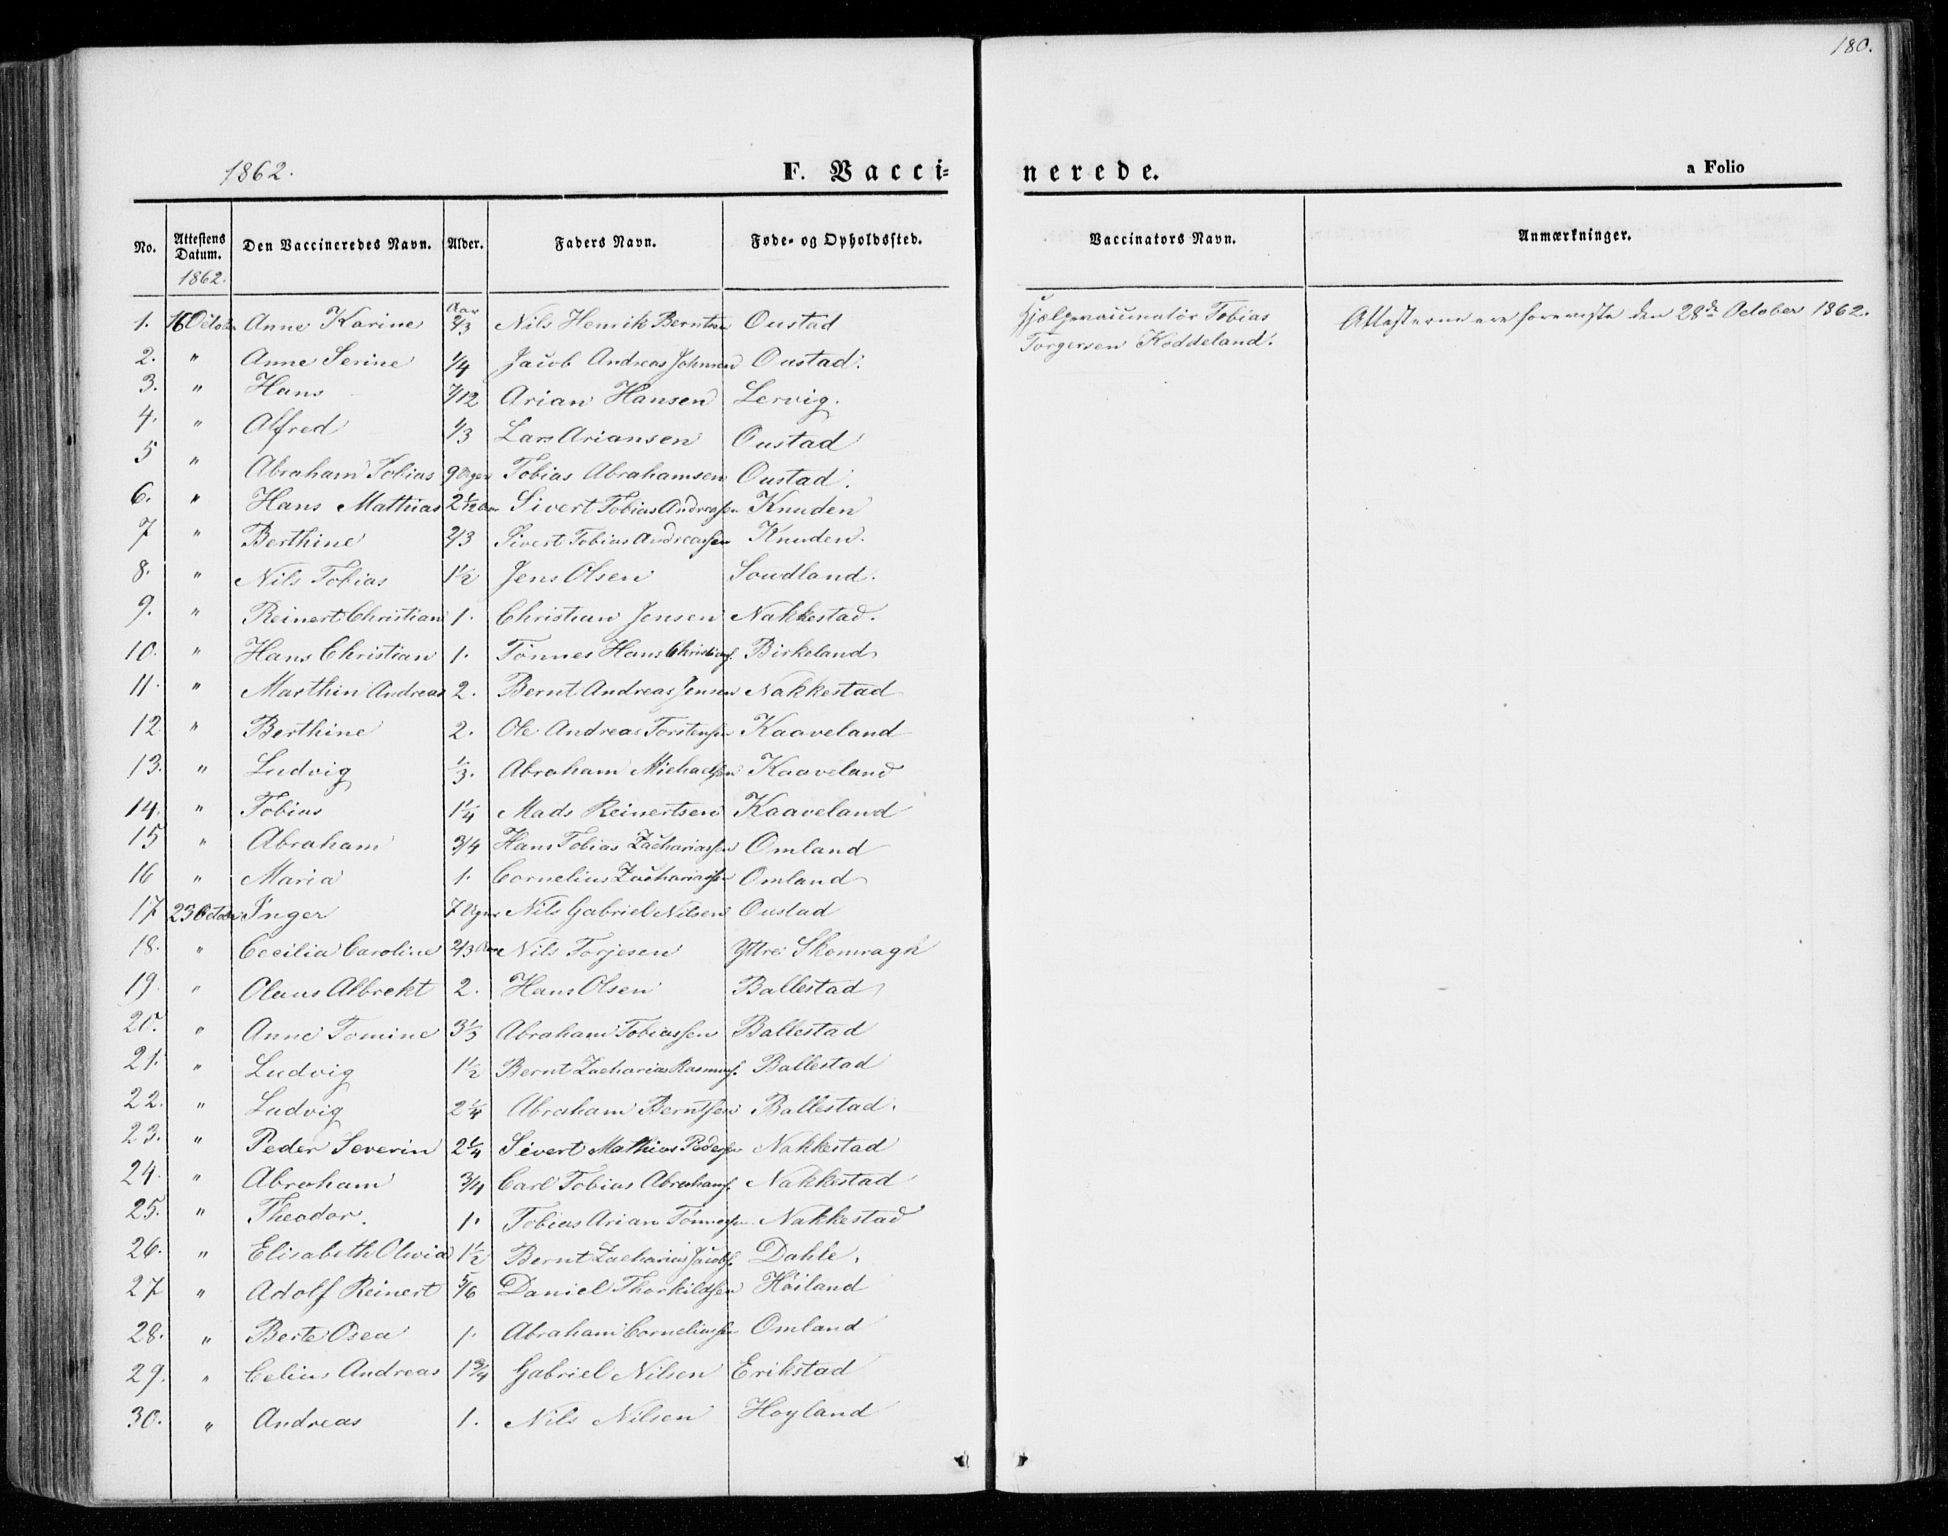 180.
1862. F. Vacci- nerede. a Folio
No. Attestens Datum. Den Vaccineredes Navn. Alder. Faders Navn. Føde- og Opholdssted. Vaccinators Navn. Anmærkninger.
1862.
1. 16 October Anne Karine Aar 2/3 Nils Henrik Berntsen Oustad Hjelpevaccinatør Tobias Attesterne ere foreviste den 28de October 1862.
2. " Anne Serine 1/4 Jacob Andreas Johnsen Oustad. Torgersen Koddeland.
3. " Hans 7/12 Arian Hansen Lervig.
4. " Alfred 1/3 Lars Ariansen Oustad
5 " Abraham Tobias 9 Uger Tobias Abrahamsen Oustad.
6. " Hans Mathias 2 1/2 Aar Sivert Tobias Andreassen Knuden
7 " Berthine 2/3 Sivert Tobias Andreassen Knuden.
8. " Nils Tobias 1 1/2 Jens Olsen Soudland.
9. " Reinert Christian 1. Christian Jensen Nakkestad.
10. " Hans Christian 1. Tønnes Hans Christians. Birkeland
11. " Marthin Andreas 2. Bernt Andreas Jensen Nakkestad
12 " Berthine 2. Ole Andreas Torstensen Kaaveland
13. " Ludvig 1/3. Abraham Michaelsen Kaaveland
14. " Tobias 1 1/4 Mads Reinertsen Kaaveland
15 " Abraham 3/4 Hans Tobias Zachariassen Omland
16 " Maria 1. Cornelius Zachariassen Omland
17 23 October Inger 7 Uger Nils Gabriel Nilsen Oustad
18. " Cecilia Caroline 2/3 Aar Nils Torjesen Yttre Skomragh
19. " Olaus Albrekt 2. Hans Olsen Ballestad
20. " Anne Tomine 3 1/3 Abraham Tobiassen Ballestad
21. " Ludvig 1 1/2 Bernt Zacharias Rasmuss. Ballestad
22. " Ludvig 2 1/4 Abraham Berntsen Ballestad.
23. " Peder Severin 2 1/4 Sivert Mathias Pedersen Nakkestad
24. " Abraham 3/4 Carl Tobias Abrahams. Nakkestad
25. " Theodor. 1. Tobias Arian Tønnessen Nakkestad
26. " Elisabeth Olivia 1 1/2 Bernt Zacharias Jacobs. Dahle.
27 " Adolf Reinert 5/6 Daniel Thorkildsen Høiland
28. " Berte Osea 1. Abraham Corneliussen Omland
29. " Celius Andreas 1 3/4 Gabriel Nilsen Erikstad
30. " Andreas 1. Nils Nilsen Hoyland